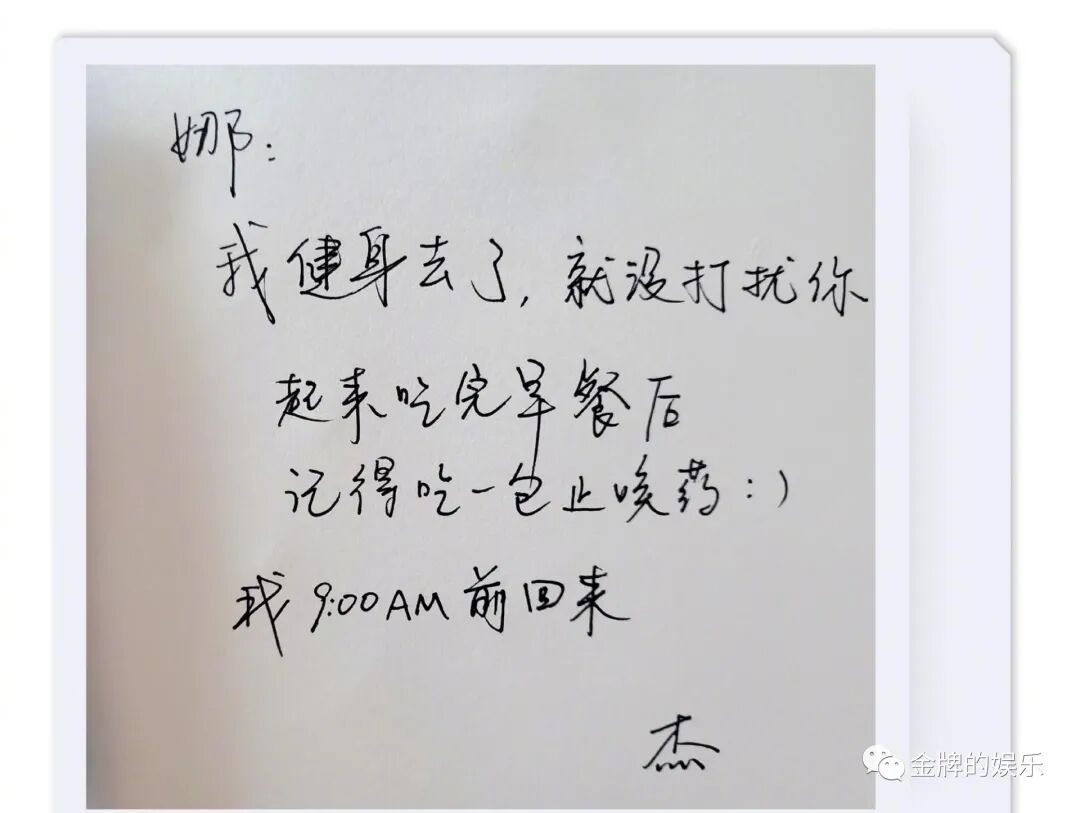 娜：
我健身去了，就没打扰你
起来吃完早餐后
记得吃一包止咳药：）
我9:00AM前回来
杰
金牌的娱乐